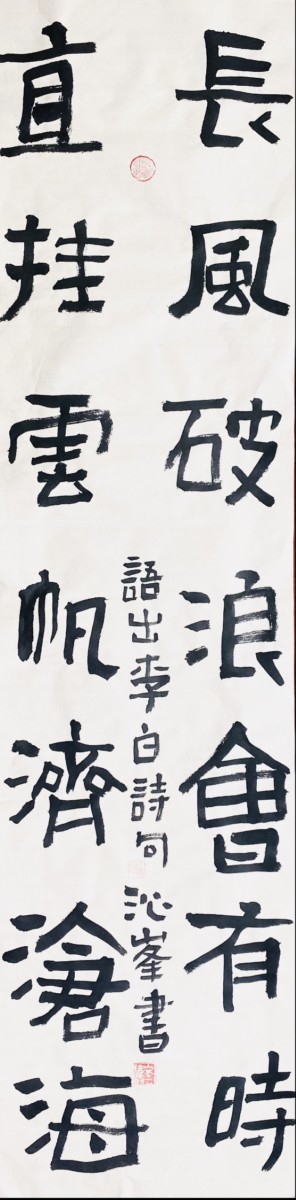 長風破浪會有時
直挂雲帆濟滄海
語出李白詩句 沁峯書